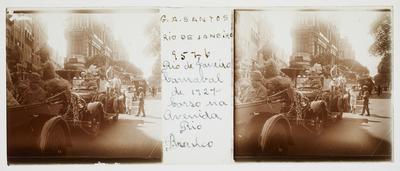 G.A. SANTOS
RIO DE JANEIRO
9576
Rio de Janeiro
Carnabal
de 1927
Corso na
Avenida
Rio
Branco